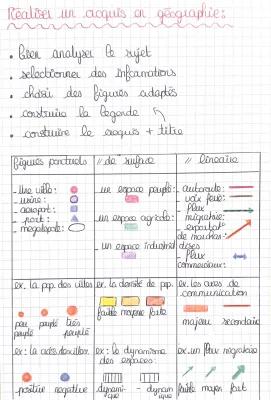 Réaliser un croquis en géographie :
• bien analyser le sujet
• sélectionner des informations
• choisir des figurés adaptés
• construire la légende
• construire le croquis + titre
figurés ponctuels
// de surface
// linéaire
- une ville :
- usine :
- aéroport :
- port :
- mégalopole :
- un espace peuplé :
- un espace agricole :
- un espace industriel
- autoroute :
- voie ferrée :
- flux
migratoire :
- exportat°
de marchan-
dises
- flux
commerciaux :
ex. la pop. des villes
peu peuplé
peuplé
très
peuplé
ex. la densité de pop.
faible moyenne forte
ex. les axes de
communication
majeur secondaire
positive négative
ex : le dynamisme
des espaces :
dynami-
que
- dynam
ique
ex. un flux migratoire
faible moyen fort